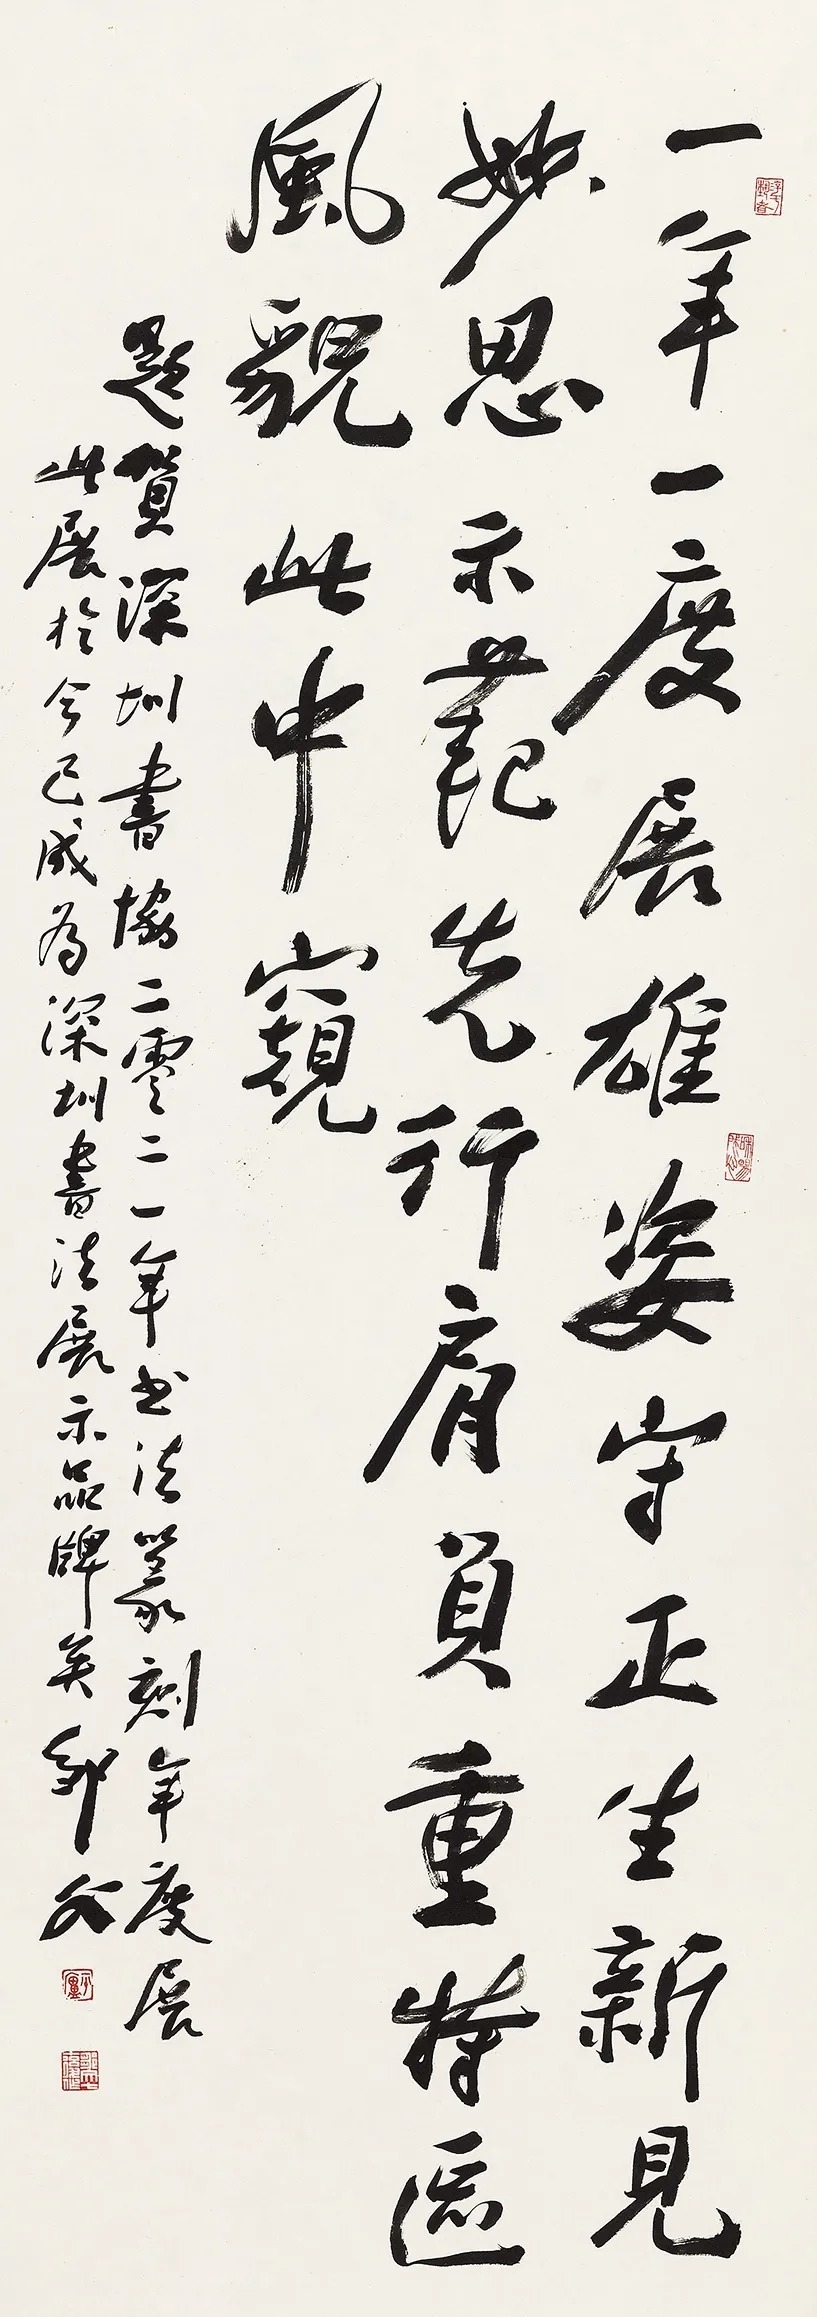 一年一度展雄姿守正生新見
妙思示範先行肩負重特區
風貌此中窺
題賀深圳書協二零二一年书法篆刻年度展
此展於今已成為深圳書法展示品牌矣